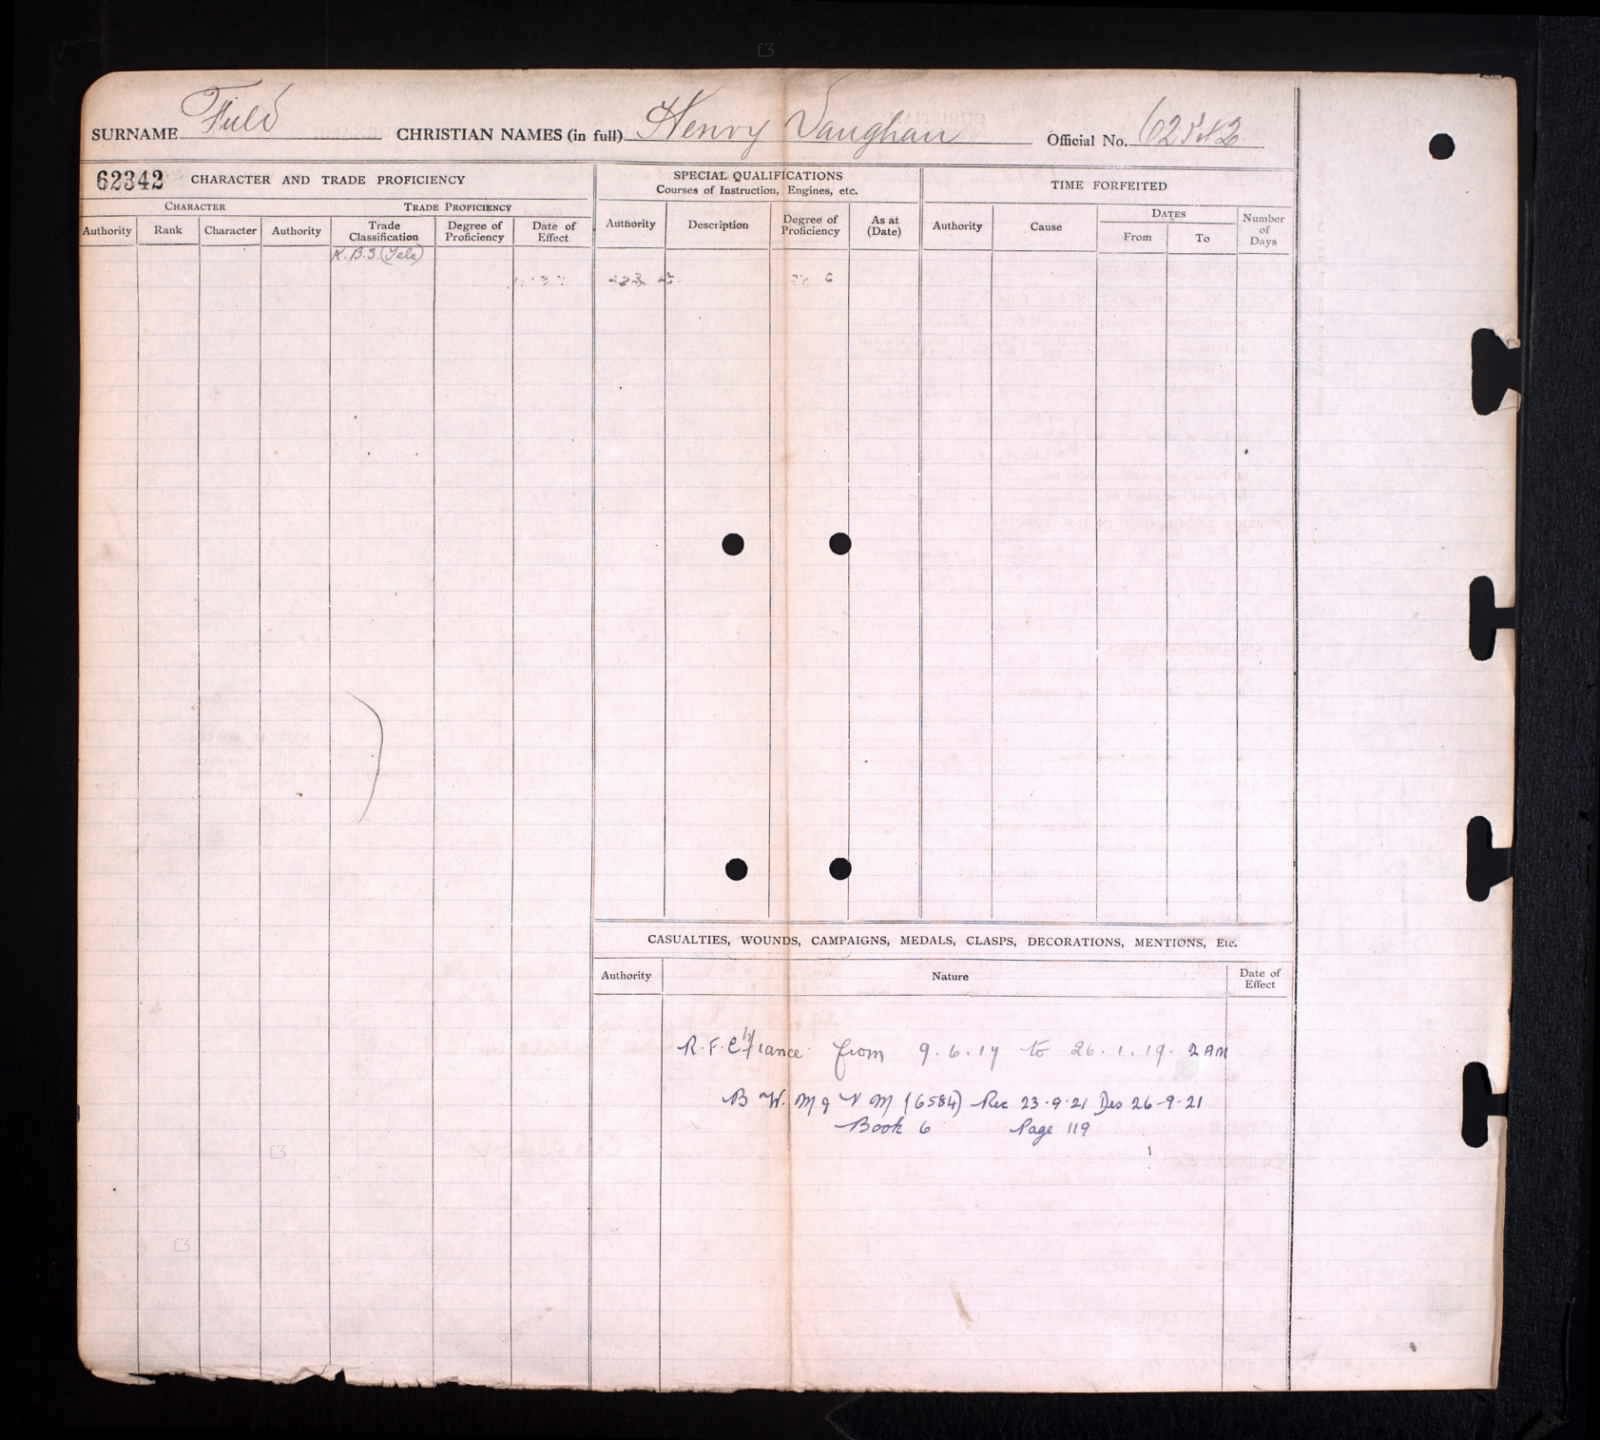 SURNAME Field CHRISTIAN NAMES (in full) Henry Vaughan Official No. 62342
62342 CHARACTER AND TRADE PROFICIENCY
SPECIAL QUALIFICATIONS
Courses of Instruction, Engines, etc.
TIME FORFEITED
CHARACTER TRADE PROFICIENCY
Authority Rank Character Authority Trade Classification Degree of Proficiency Date of Effect
Authority Description Degree of Proficiency As at (Date)
Authority Cause DATES From To Number of Days
K.B.S. (Tele)
CASUALTIES, WOUNDS, CAMPAIGNS, MEDALS, CLASPS, DECORATIONS, MENTIONS, Etc.
Authority Nature Date of Effect
R.F.C. France from 9.6.17 to 26.1.19. 2 AM
B W. M & V M (6584) Rec 23-9-21 Des 26-9-21
Book 6 Page 119